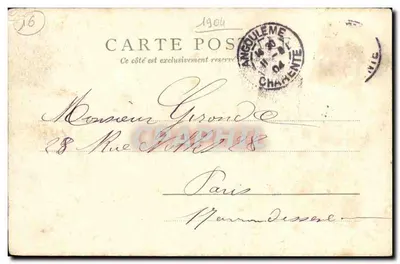 16
1904
CARTE POS
Ce côté est exclusivement
ANGOULEME
11 - 8
04
CHARENTE
NTE
Monsieur Gironde
28 Rue 28
Paris
17 arrondissem